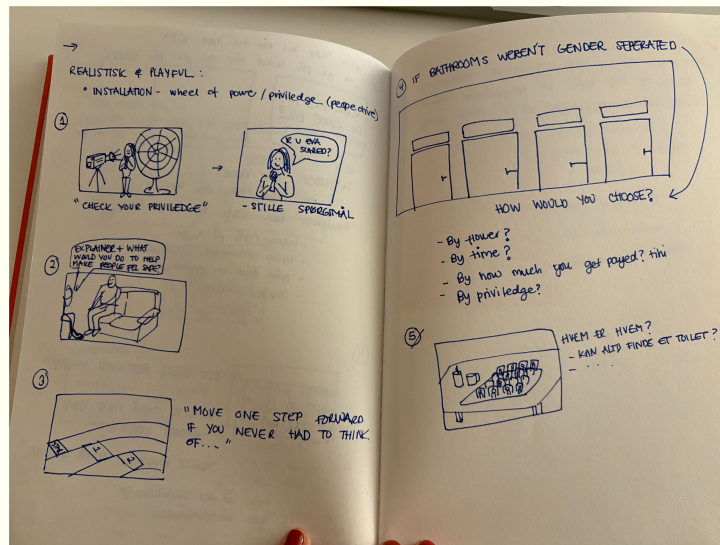 →
REALISTISK & PLAYFUL :
• INSTALLATION - wheel of power / priviledge (perspective)
1
R U EVA
SCARED?
→
"CHECK YOUR PRIVILEDGE"
- STILLE SPØRGSMÅL
2
EXPLAINER + WHAT
WOULD YOU DO TO HELP
MAKE PEOPLE FEL SAFE?
3
1
2
"MOVE ONE STEP FORWARD
IF YOU NEVER HAD TO THINK
OF..."
4 IF BATHROOMS WEREN'T GENDER SEPERATED
HOW WOULD YOU CHOOSE?
- By flower?
- By time?
- By how much you get payed? tihi
- By priviledge?
5
HVEM ER HVEM?
- KAN ALTID FINDE ET TOILET?
- . . . .